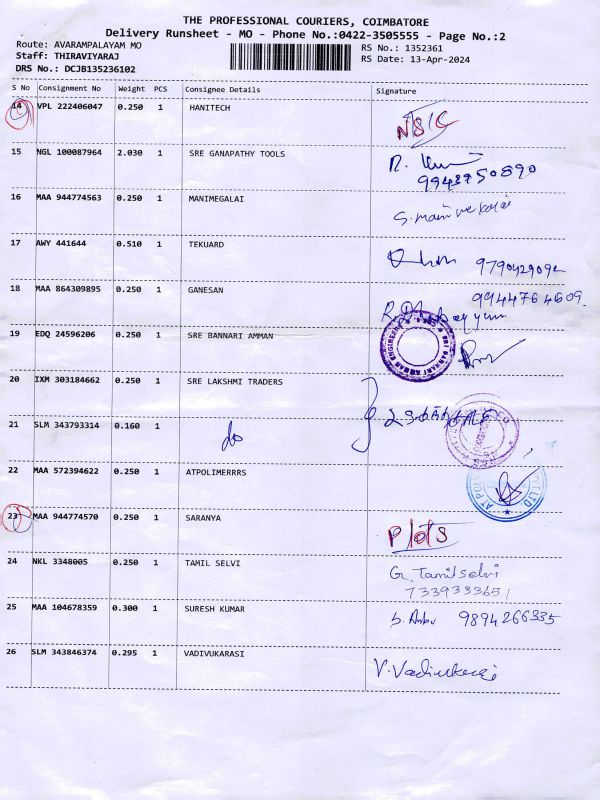 THE PROFESSIONAL COURIERS, COIMBATORE
Delivery Runsheet - MO - Phone No.:0422-3505555 - Page No.:2
Route: AVARAMPALAYAM MO
RS No.: 1352361
Staff: THIRAVIYARAJ
RS Date: 13-Apr-2024
DRS No.: DCJB135236102
S No Consignment No Weight PCS Consignee Details Signature
14 VPL 222406047 0.250 1 HANITECH
N/S/C
15 NGL 100087964 2.030 1 SRE GANAPATHY TOOLS
16 MAA 944774563 0.250 1 MANIMEGALAI
17 AWY 441644 0.510 1 TEKUARD
18 MAA 864309895 0.250 1 GANESAN
19 EDQ 24596206 0.250 1 SRE BANNARI AMMAN
20 IXM 303184662 0.250 1 SRE LAKSHMI TRADERS
21 SLM 343793314 0.160 1 do
22 MAA 572394622 0.250 1 ATPOLIMERRRS
23 MAA 944774570 0.250 1 SARANYA
24 NKL 3348005 0.250 1 TAMIL SELVI G. Tamilselvi
7339333651
25 MAA 104678359 0.300 1 SURESH KUMAR S. Anbu 9894266335
26 SLM 343846374 0.295 1 VADIVUKARASI